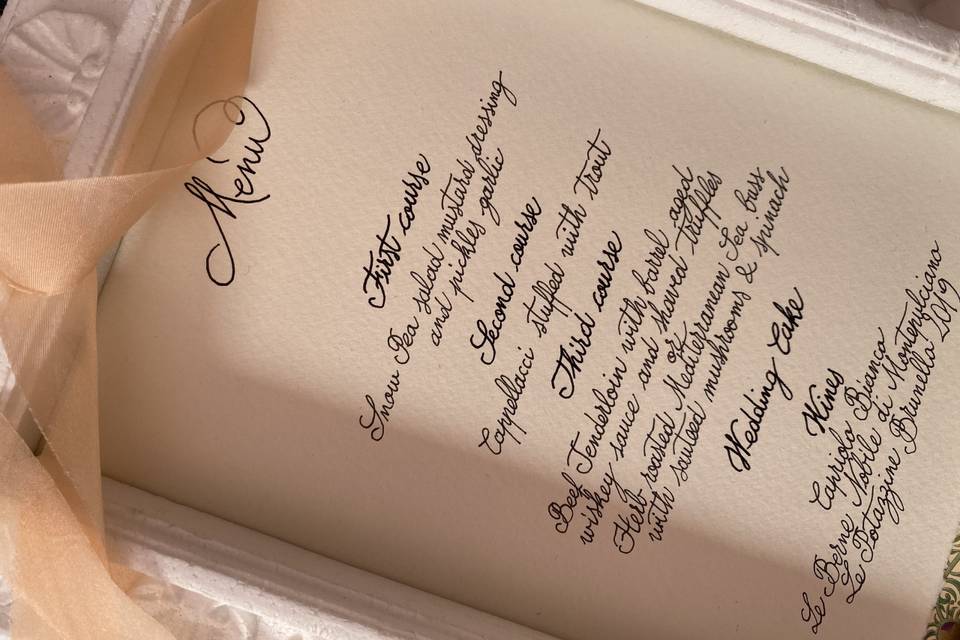 Menù
First course
Snow Pea salad mustard dressing
and pickles garlic
Second course
Cappellacci stuffed with trout
Third course
Beef Tenderloin with barrel aged
wiskey sauce and shaved truffles
or
Herb roasted Mediterranean Sea bass
with sauteed mushrooms & spinach
Wedding Cake
Wines
Capriola Bianco
Le Berne Nobile di Montepulciano
Le Potazzine Brunello 2019